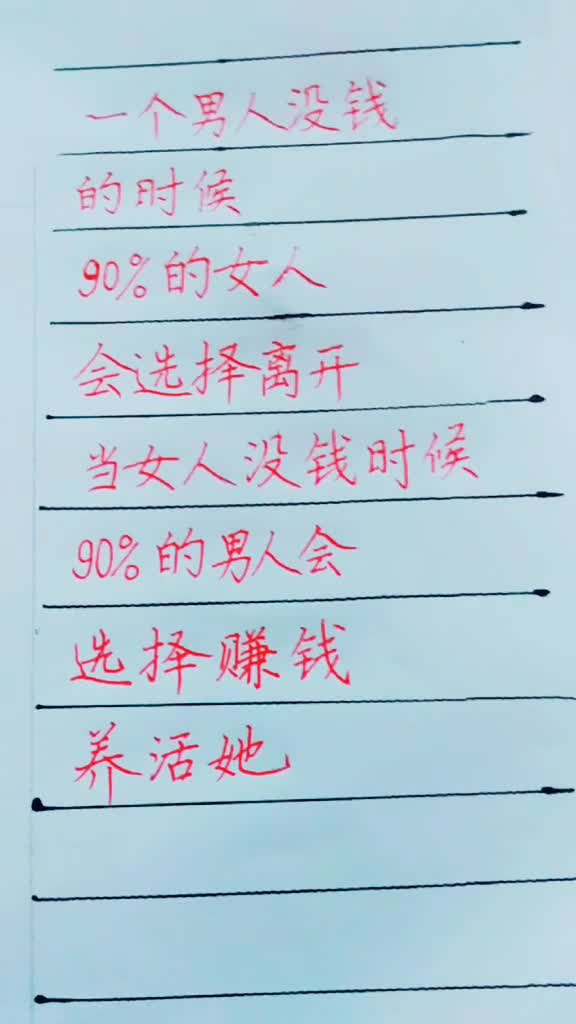 一个男人没钱
的时候
90%的女人
会选择离开
当女人没钱时候
90%的男人会
选择赚钱
养活她